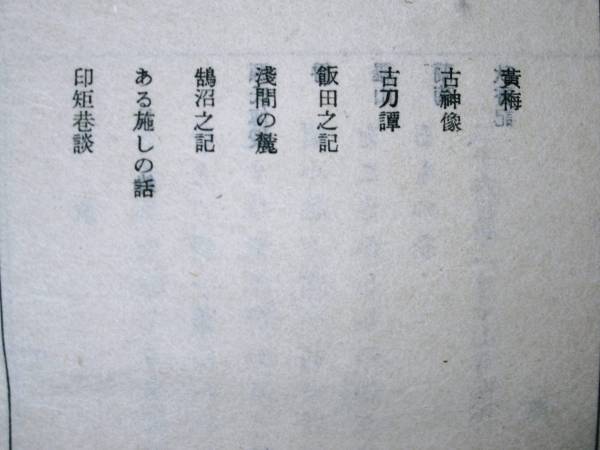 黃梅
古神像
古刀譚
飯田之記
淺間の麓
鵠沼之記
ある施しの話
印矩巷談